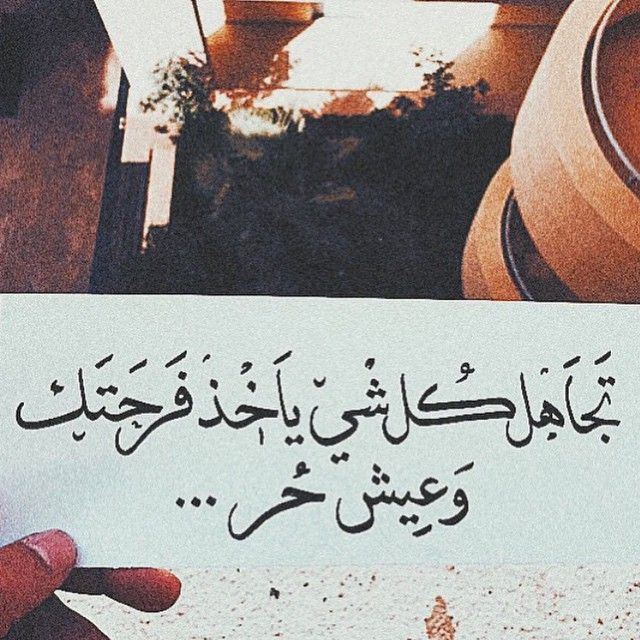 تَجَاَهْل كُل شْيّ يِاَخْذ فَرحَتَك
وَعِيش حُر ...